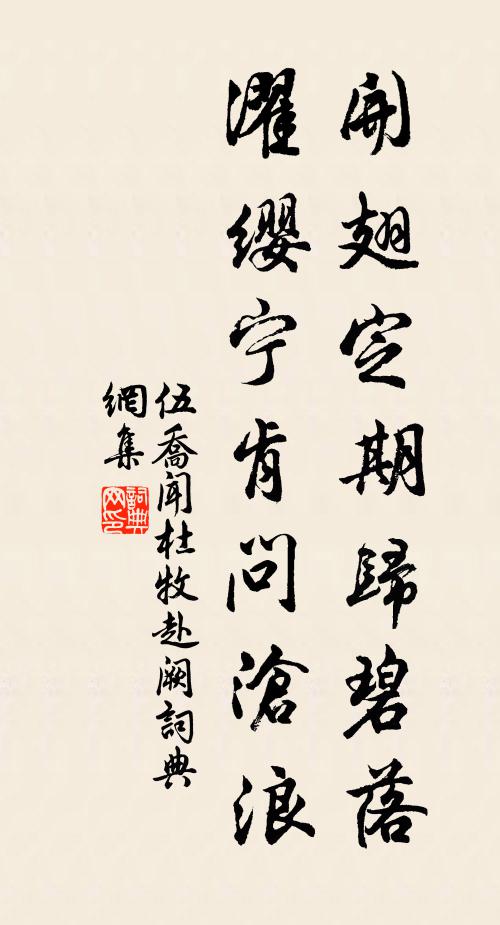 開翅定期歸碧落
濯纓宁肯问滄浪
伍喬闻杜牧赴闕詞典
網集
詞典
网印